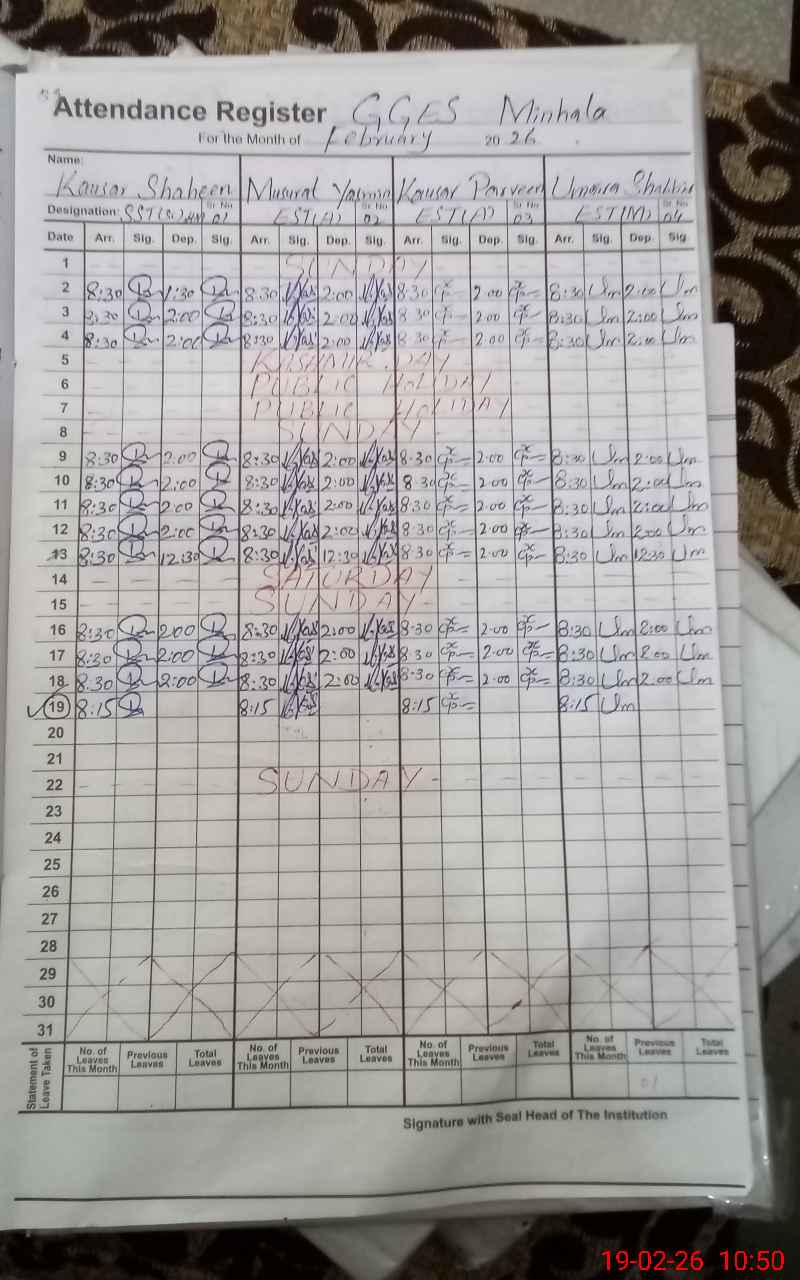 Attendance Register GGES Minhala
For the Month of February 2026
Name:
Kausar Shaheen Musurat Yasmin Kausar Parveen Umaira Shabbir
Designation: SST(Sc)HM Sr No 01 EST(A) Sr No 02 EST(A) Sr No 03 EST(M) Sr No 04
Date Arr. Sig. Dep. Sig. Arr. Sig. Dep. Sig. Arr. Sig. Dep. Sig. Arr. Sig. Dep. Sig.
1 SUNDAY
2 8:30 1:30 8:30 2:00 8:30 2:00 8:30 Um 2:00 Um
3 8:30 2:00 8:30 2:00 8:30 2:00 8:30 Um 2:00 Um
4 8:30 2:00 8:30 2:00 8:30 2:00 8:30 Um 2:00 Um
5 KASHMIR DAY
6 PUBLIC HOLIDAY
7 PUBLIC HOLIDAY
8 SUNDAY
9 8:30 2:00 8:30 2:00 8:30 2:00 8:30 Um 2:00 Um
10 8:30 2:00 8:30 2:00 8:30 2:00 8:30 Um 2:00 Um
11 8:30 2:00 8:30 2:00 8:30 2:00 8:30 Um 2:00 Um
12 8:30 2:00 8:30 2:00 8:30 2:00 8:30 Um 2:00 Um
13 8:30 12:30 8:30 12:30 8:30 2:00 8:30 Um 12:30 Um
14 SATURDAY
15 SUNDAY
16 8:30 2:00 8:30 2:00 8:30 2:00 8:30 Um 2:00 Um
17 8:30 2:00 8:30 2:00 8:30 2:00 8:30 Um 2:00 Um
18 8:30 2:00 8:30 2:00 8:30 2:00 8:30 Um 2:00 Um
19 8:15 8:15 8:15 8:15 Um
20
21
22 SUNDAY
23
24
25
26
27
28
29
30
31
Statement of Leave Taken No. of Leaves This Month Previous Leaves Total Leaves No. of Leaves This Month Previous Leaves Total Leaves No. of Leaves This Month Previous Leaves Total Leaves No. of Leaves This Month Previous Leaves Total Leaves
01
Signature with Seal Head of The Institution
19-02-26 10:50